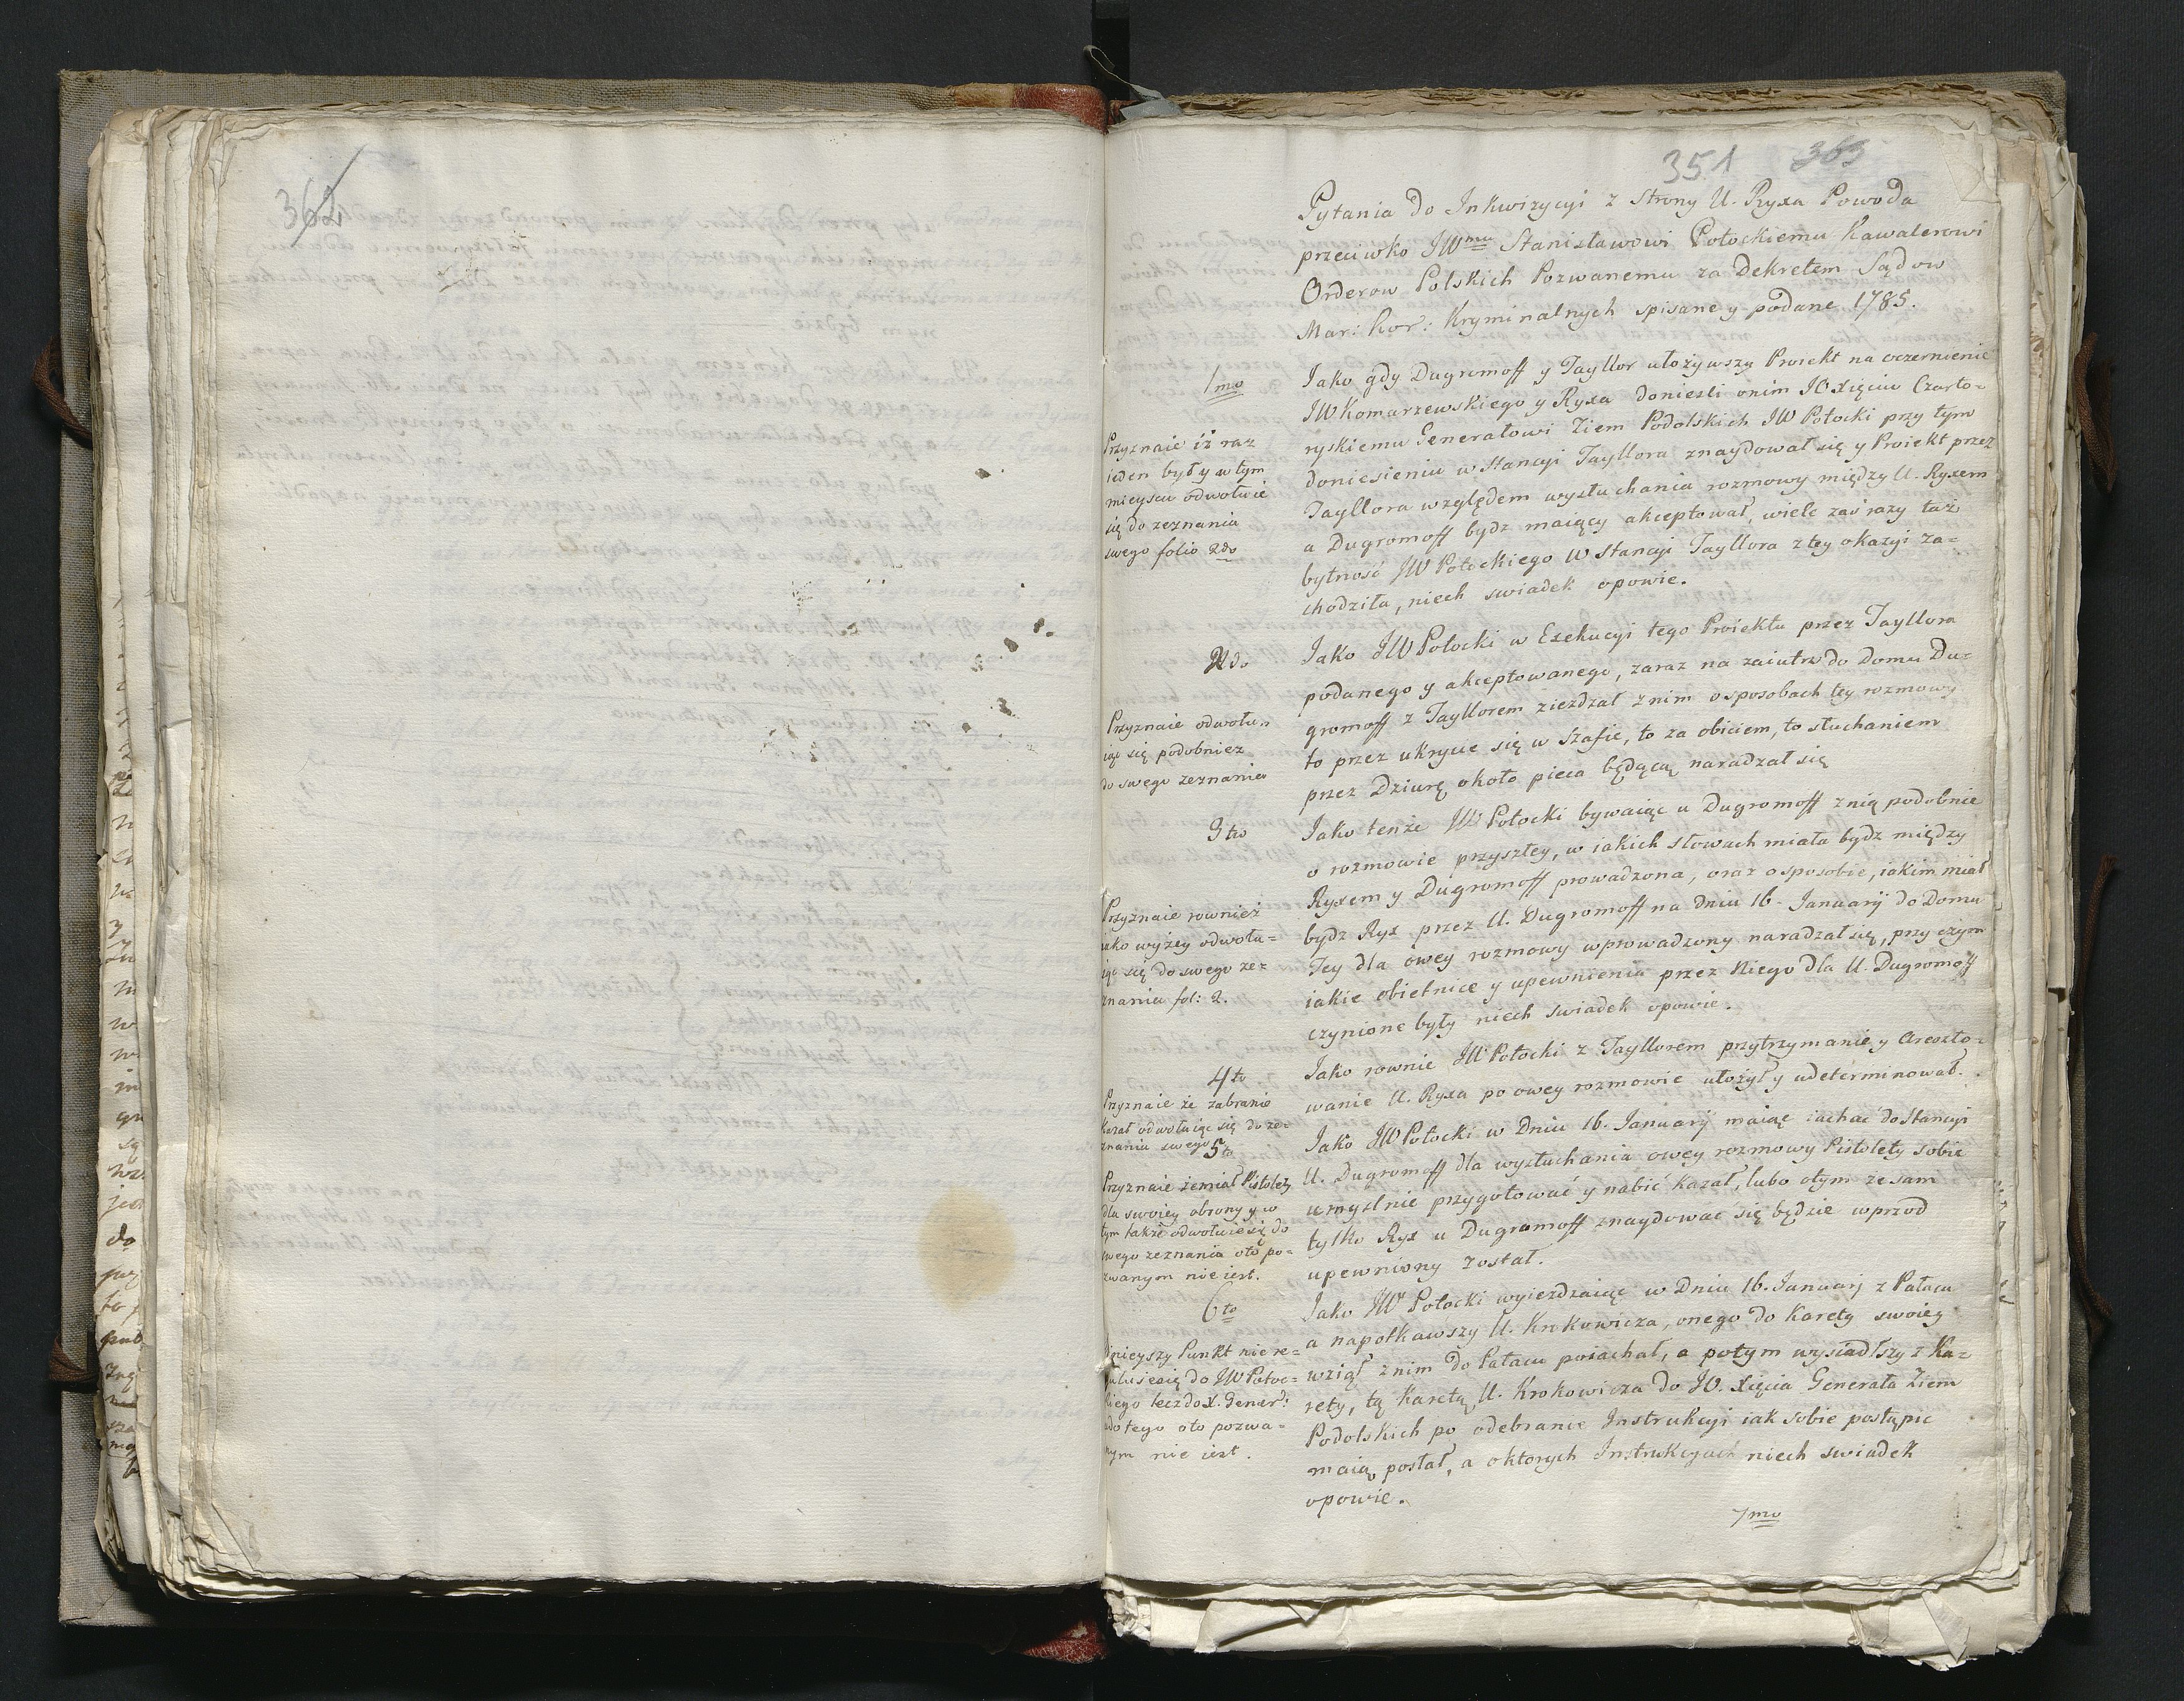 362
351 363
Pytania do Inkwizycyi z Strony U. Ryxa Powoda
przeciwko JWmu Stanisławowi Potockiemu Kawalerowi
Orderow Polskich Pozwanemu za Dekretem Sądow
Mar: Kor: Kryminalnych spisane y podane 1785.
1mo
Jako gdy Dugromoff y Tayllor ułożywszy Proiekt na oczernienie
JW Komarzewskiego y Ryxa donieśli onim JO Xięciu Czarto=
ryskiemu Generałowi Ziem Podolskich JW Potocki przy tym
doniesieniu w Stancyi Tayllora znaydował się y Proiekt przez
Tayllora względem wysłuchania rozmowy między U. Ryxem
a Dugromoff bydz maiący akceptował, wiele zaś razy taż
bytność JW Potockiego w Stancyi Tayllora z tey okazyi za=
chodziła, niech swiadek opowie.
Przyznaie iż raz
ieden był y w tym
mieyscu odwołuie
się do zeznania
swego folio 2do
2do
Jako JW Potocki w Exekucyi tego Proiektu przez Tayllora
podanego y akceptowanego, zaraz na zaiutrz do Domu Du=
gromoff z Tayllorem ziezdzał z nim o sposobach tey rozmowy
to przez ukrycie się w Szafie, to za obiciem, to słuchaniem
przez Dziurę około pieca będącą naradzał się
Przyznaie odwołu=
iąc się podobnież
do swego zeznania
3tio
Jako tenże JW Potocki bywaiąc u Dugromoff z nią podobnie
o rozmowie przyszłey, w iakich słowach miała bydz między
Ryxem y Dugromoff prowadzona, oraz o sposobie, iakim miał
bydz Ryx przez U. Dugromoff na dniu 16. Januarij do Domu
Tey dla owey rozmowy wprowadzony naradzał się, przy czym
iakie obietnice y upewnienia przez Niego dla U. Dugromoff
czynione były niech swiadek opowie.
Przyznaie rownież
iako wyżey odwołu=
iąc się do swego ze=
znania fol: 2.
4to
Jako rownie JW Potocki z Tayllorem przytrzymanie y Areszto=
wanie U. Ryxa po owey rozmowie ułożył y udeterminował.
Przyznaie że zabranie
kazał odwołuiąc się do ze=
znania swego
5to
Jako JW Potocki w Dniu 16. Januarij maiąc iachać do Stancyi
U. Dugromoff dla wysłuchania owey rozmowy Pistolety sobie
umyslnie przygotować y nabić kazał, lubo o tym ze sam
tylko Ryx u Dugromoff znaydować się będzie wprzod
upewniony został.
Przyznaie że miał Pistolety
dla swoiey obrony y w
tym także odwołuie się do
swego zeznania oto po=
zwanym nie iest.
6to
Jako JW Potocki wyiezdzaiąc w Dniu 16. Januarij z Pałacu
a napotkawszy U. Krokowicza, onego do Karety swoiey
wziął z nim do Pałacu poiachał, a potym wysiadłszy z Ka=
rety, tą Karetą U. Krokowicza do JO. Xięcia Generała Ziem
Podolskich po odebranie Instrukcyi iak sobie postąpić
maią posłał, a o ktorych Instrukcyach niech swiadek
opowie.
nieyszy Punkt nie re=
guluie się do JW Potoc=
kiego lecz do X. Gener:
a do tego oto pozwa=
nym nie iest.
7mo